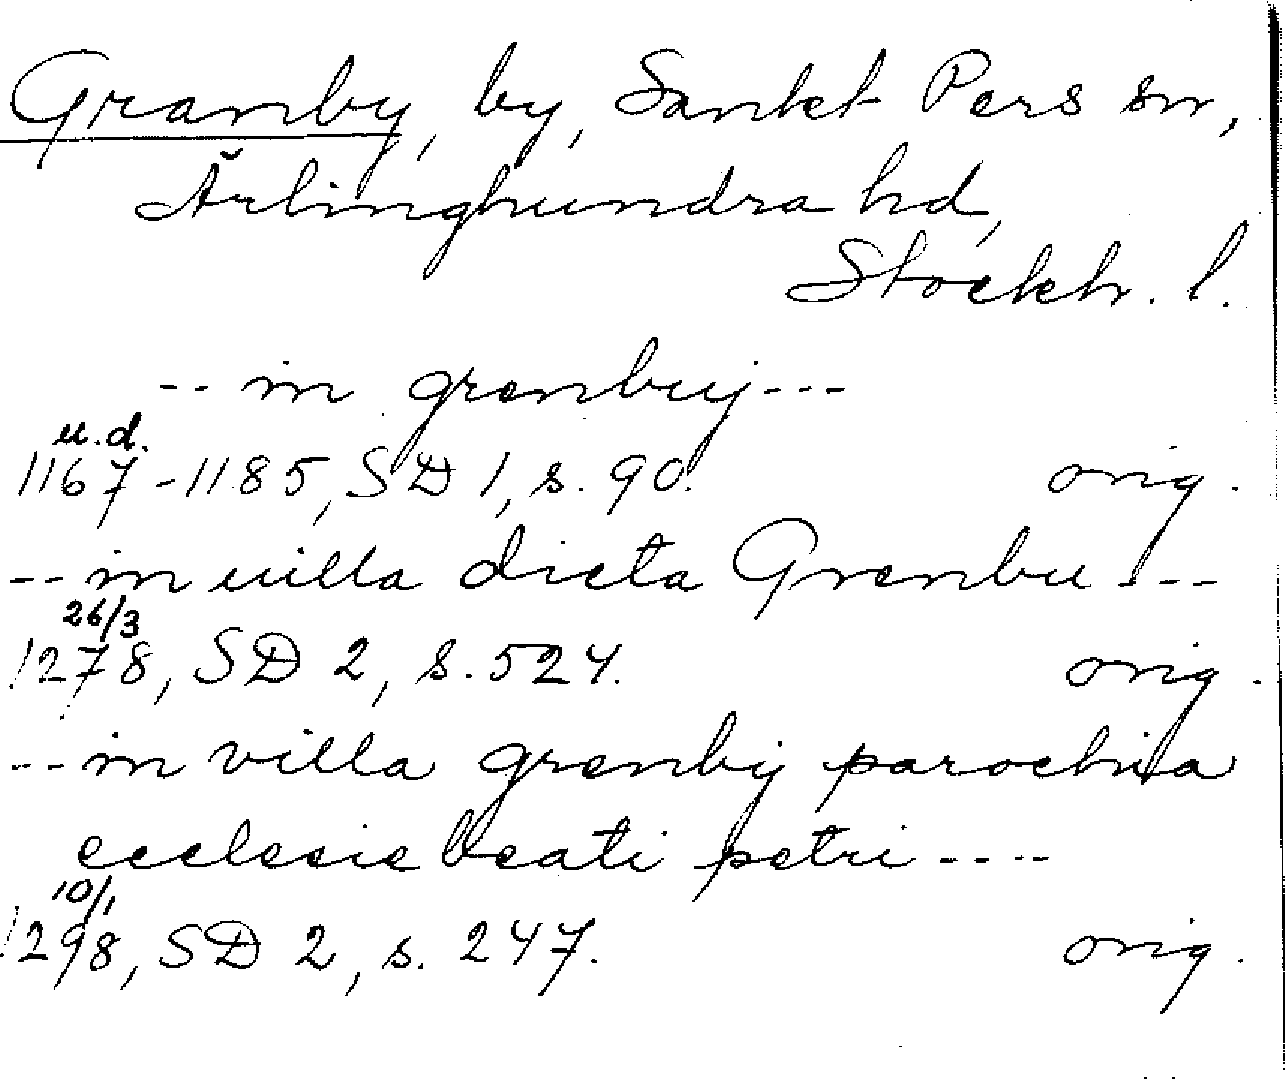 Granby, by, Sankt Pers sn,
Ärlinghundra hd,
Stockh. l.
-- in grenbuy ---
u.d.
1167-1185, SD 1, s. 90. orig.
-- in uilla dicta Grenbu ---
26/3
1278, SD 2, s. 524. orig.
-- in villa grenby parochia
ecclesie beati petri ----
10/1
1298, SD 2, s. 247. orig.